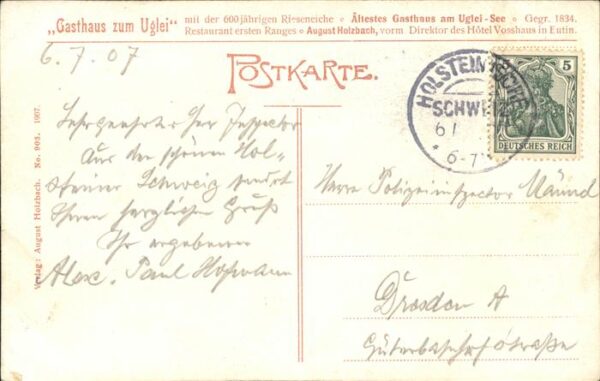 „Gasthaus zum Uglei“ mit der 600jährigen Rieseneiche ∘ Ältestes Gasthaus am Uglei-See ∘ Gegr. 1834.
Restaurant ersten Ranges ∘ August Holzbach, vorm Direktor des Hôtel Vosshaus in Eutin.
6.7.07
POSTKARTE.
HOLSTEINISCHE
SCHWEIZ
6/
* 6-7
5
DEUTSCHES REICH
Sehrgeehrter Herr Inspector
Aus der schönen Hol-
steiner Schweiz sendet
Ihnen herzlichen Gruß
Ihr ergebener
Alex. Paul Hofmann
Herrn Polizeiinspector
Dresden A
Güterbahnhofstraße
Verlag: August Holzbach. No. 905. 1907.